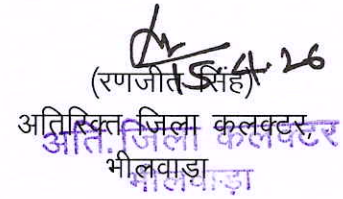 15.4.26
(रणजीत सिंह)
अतिरिक्त जिला कलक्टर,
अति. जिला कलेक्टर
भीलवाड़ा
भीलवाड़ा